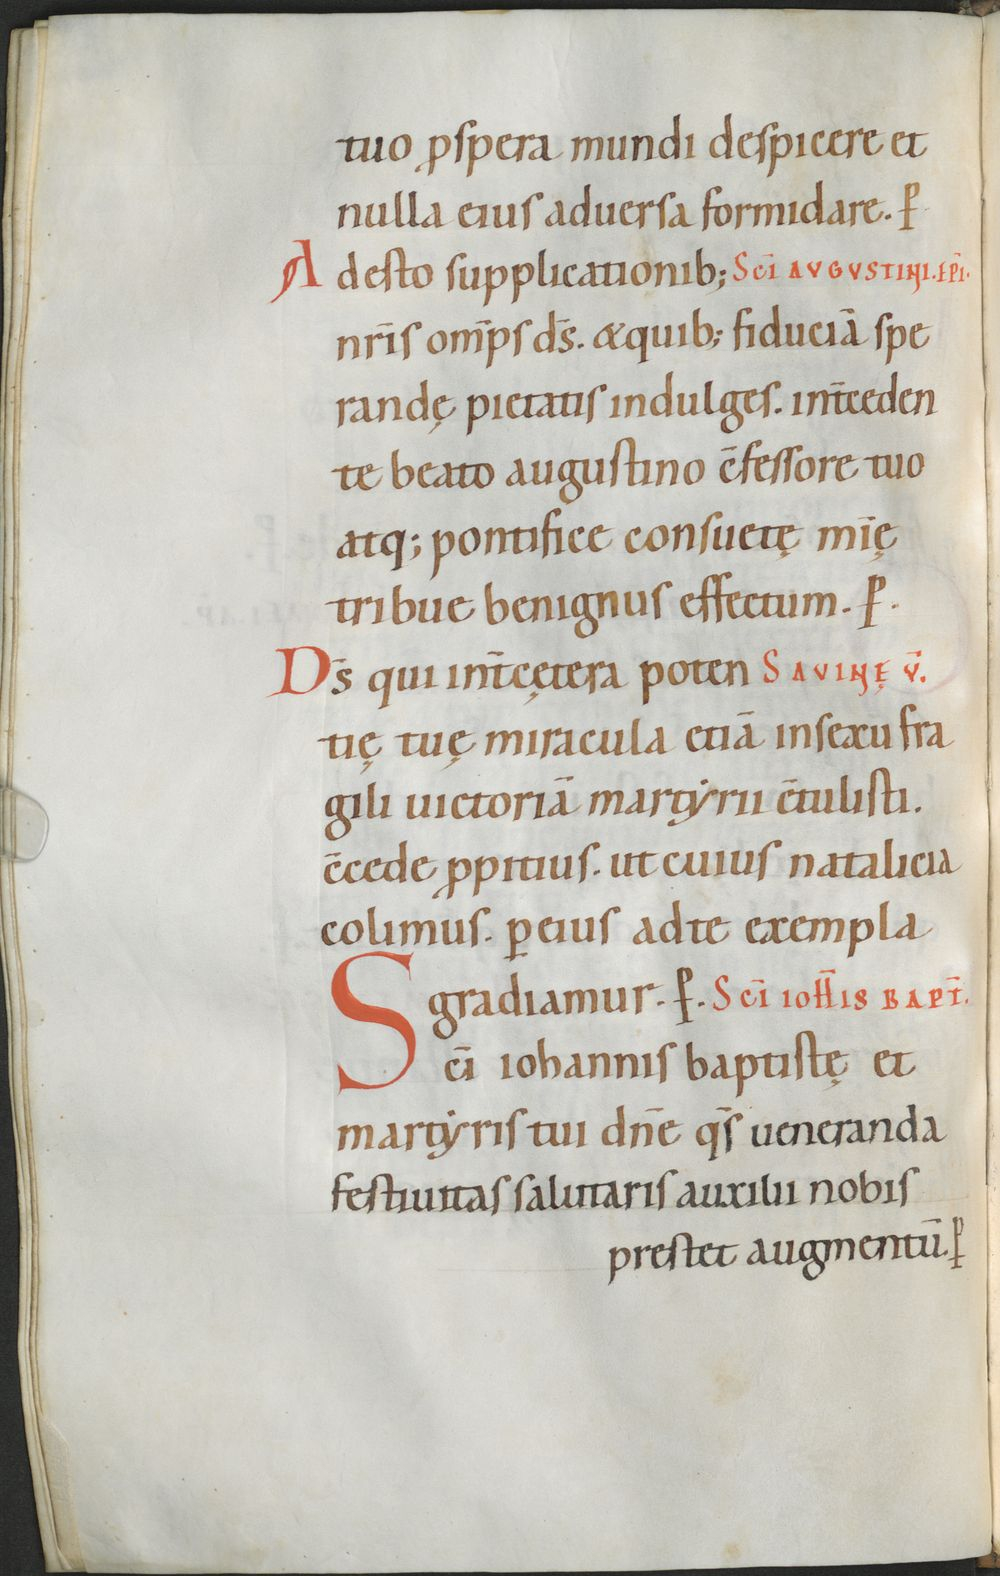 tuo ꝓspera mundi despicere et
nulla eius aduersa formidare. ꝑ
Adesto supplicationib; Sc̄i AVGVSTINI. EP̄I.
nr̄is om̄ps ds̄. &quib; fiduciā spe
randę pietatis indulges. int̄ceden
te beato augustino c̄fessore tuo
atq; pontifice consuetę mīę
tribue benignus effectum. ꝑ.
Ds̄ qui int̄cętera poten SAVINĘ V̄.
tię tuę miracula etiā insexu fra
gili uictoriā martẏrii c̄tulisti.
c̄cede ꝓpitius. ut cuius natalicia
colimus. ꝑ eius ad te exempla
gradiamur. ꝑ. Sc̄i IOH̄IS BAPT̄.
Sc̄i iohannis baptistę et
martẏris tui dn̄e qs̄ ueneranda
festiuitas salutaris auxilii nobis
prestet augmentū. ꝑ